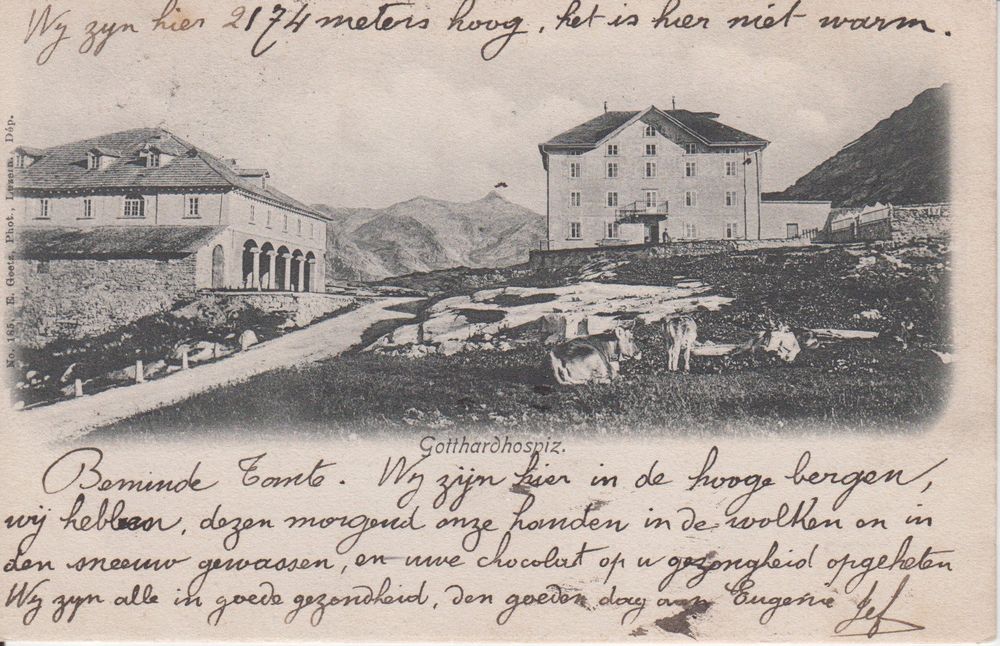 Wy zyn hier 2174 meters hoog, het is hier niet warm.
No. 165. E. Goetz, Phot., Luzern. Dép.
Gotthardhospiz.
Beminde Tante. Wy zijn hier in de hooge bergen,
wij hebben, dezen morgend onze handen in de wolken en in
den sneeuw gewassen, en uwe chocolat op u gezongheid opgeheten
Wy zyn alle in goede gezondheid, den goeden dag aan Eugenie Jef